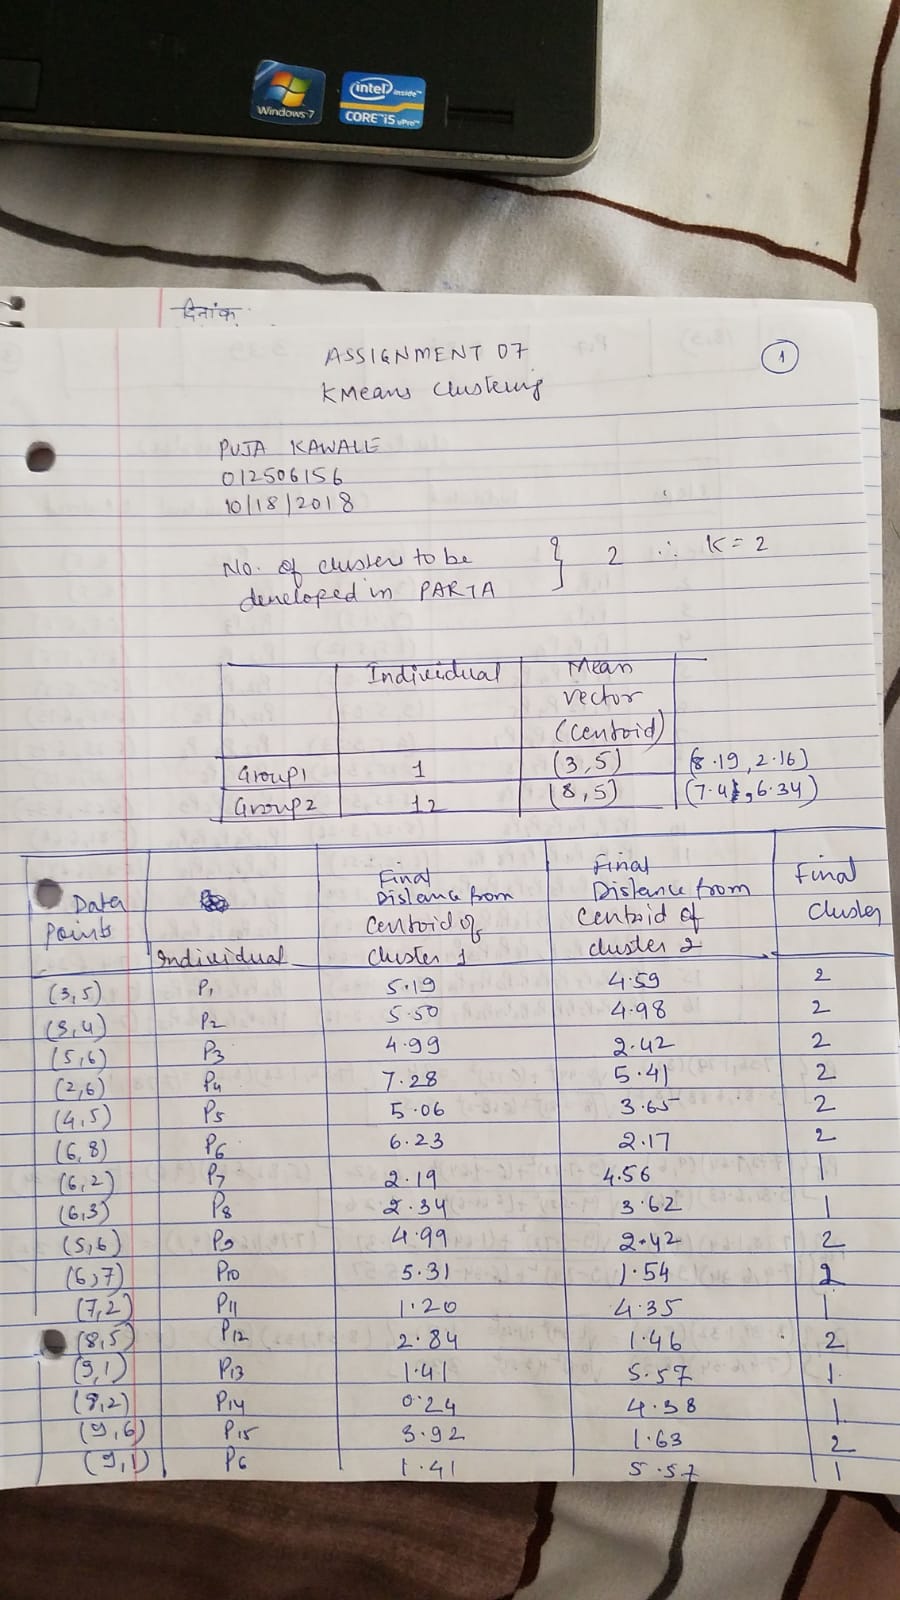 Windows 7
intel inside™
CORE™ i5
vPro™
दिनांक
ASSIGNMENT 07
1
KMeans Clustering
PUJA KAWALE
012506156
10/18/2018
No. of clusters to be } 2 ∴ K = 2
developed in PARTA
Individual Mean
vector
(centroid)
Group1 1 (3,5) (8.19, 2.16)
Group2 12 (8,5) (7.41, 6.34)
Data points Individual Final Distance from Centroid of cluster 1 Final Distance from Centroid of cluster 2 Final Cluster
(3,5) P1 5.19 4.59 2
(3,4) P2 5.50 4.98 2
(5,6) P3 4.99 2.42 2
(2,6) P4 7.28 5.41 2
(4,5) P5 5.06 3.65 2
(6,8) P6 6.23 2.17 2
(6,2) P7 2.19 4.56 1
(6,3) P8 2.34 3.62 1
(5,6) P9 4.99 2.42 2
(6,7) P10 5.31 1.54 2
(7,2) P11 1.20 4.35 1
(8,5) P12 2.84 1.46 2
(9,1) P13 1.41 5.57 1
(8,2) P14 0.24 4.38 1
(9,6) P15 3.92 1.63 2
(9,1) P6 1.41 5.57 1